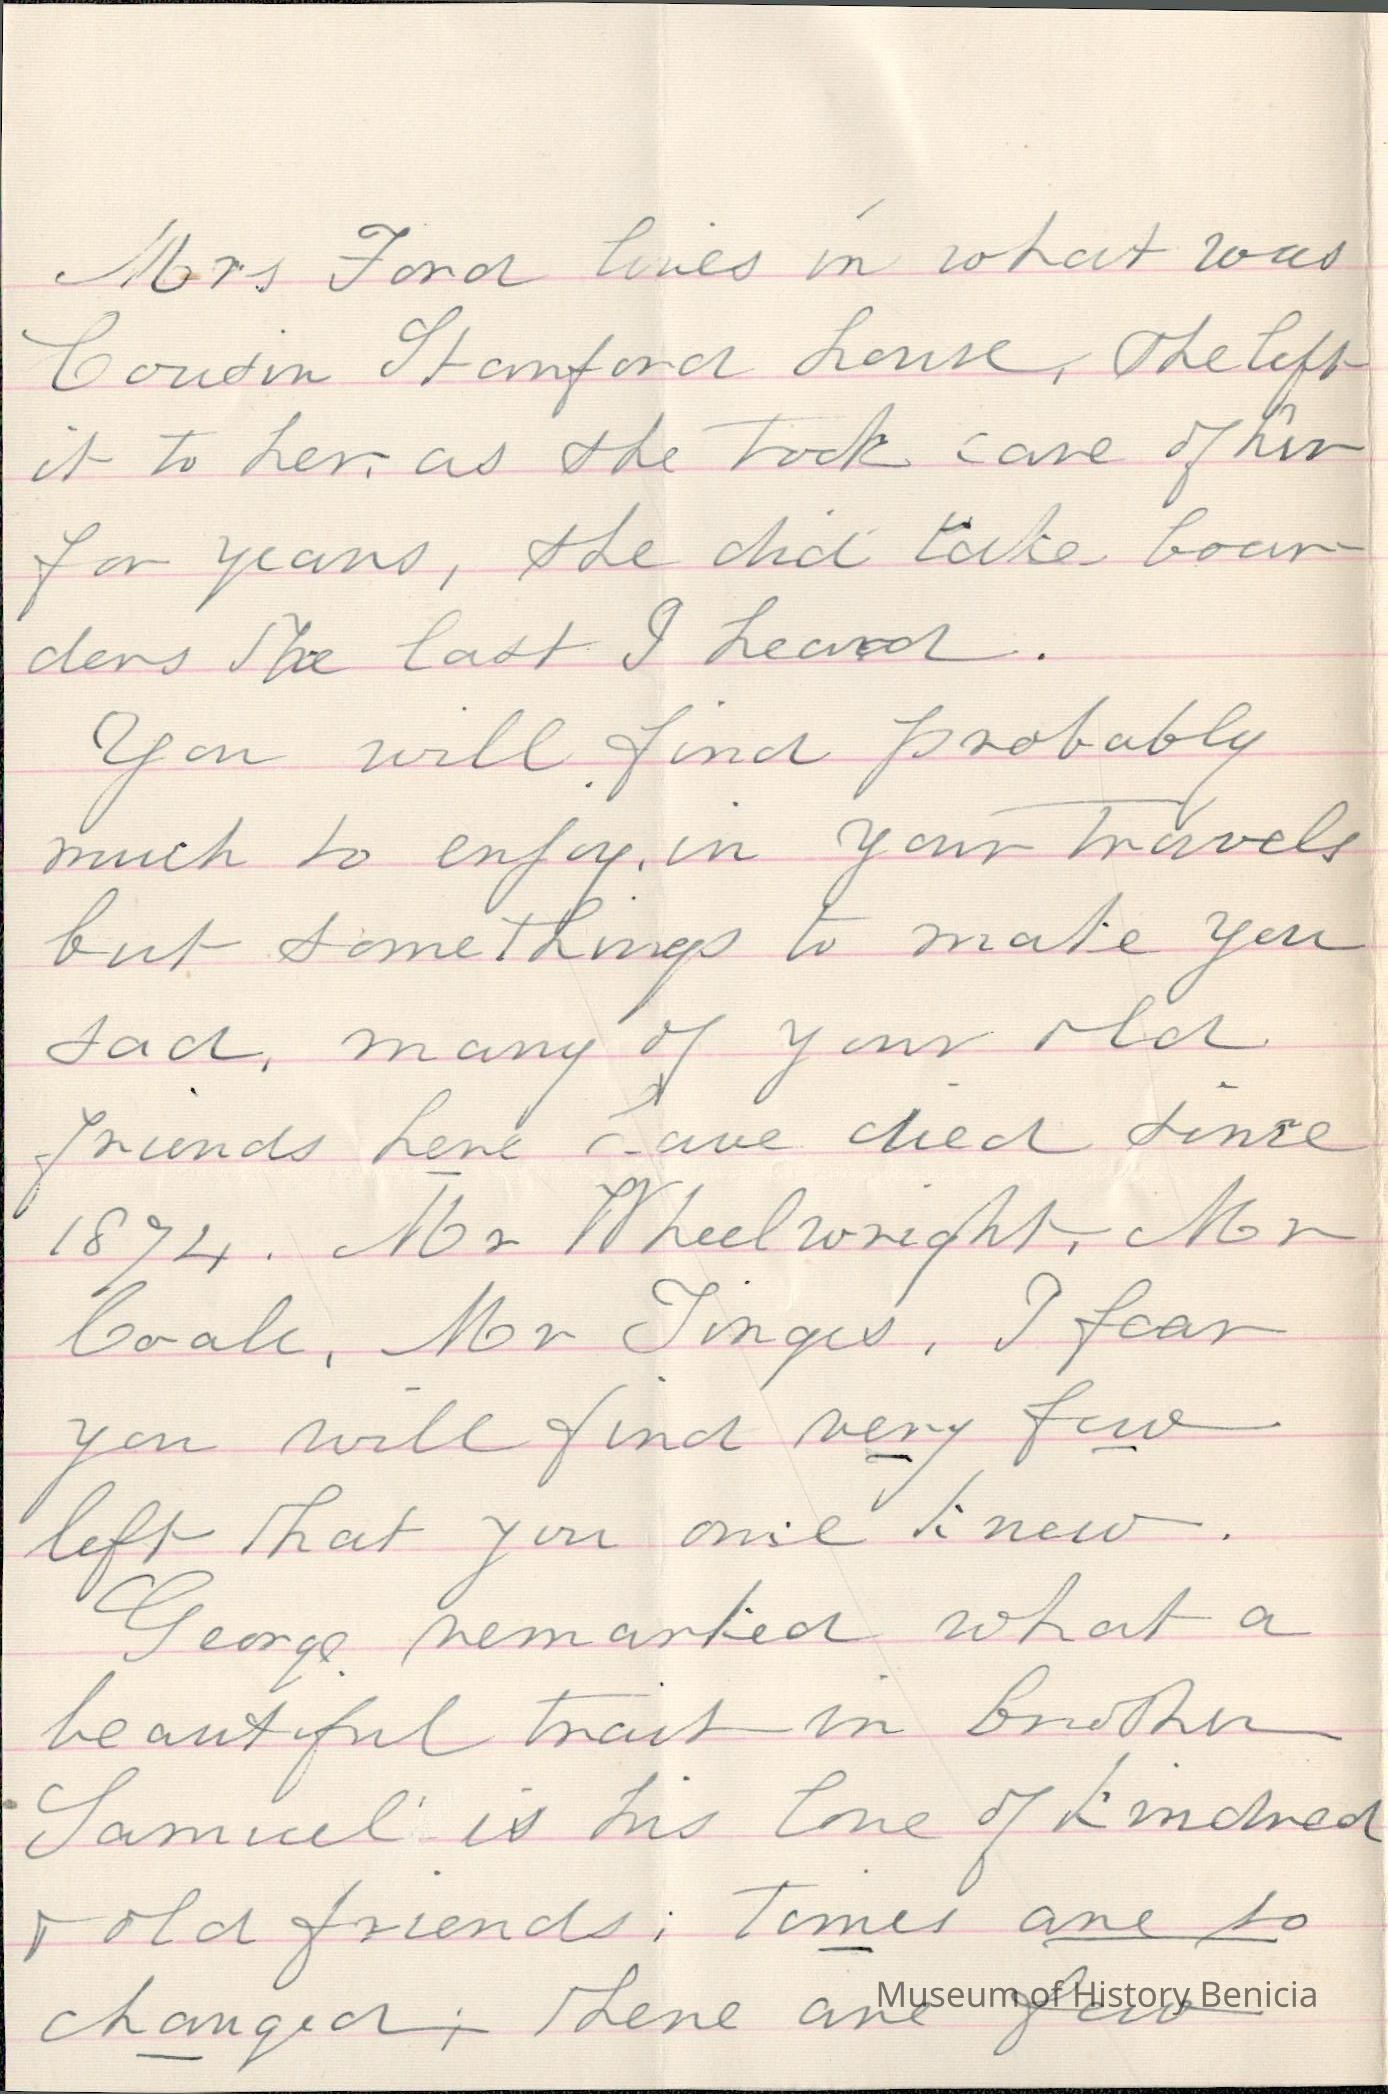 Mrs Ford lives in what was
Cousin Stanford house, She left
it to her. as she took care of her
for years, she did take boar-
ders the last I heard.
You will find probably
much to enjoy, in your travels
but some things to make you
sad, many of your old
friends here have died since
1874. Mr Wheelwright, Mr
Coale, Mr Tinges, I fear
you will find very few
left that you once knew.
George remarked what a
beautiful trait in brother
Samuel is his love of kindred
& old friends; times are so
changed; there are few
Museum of History Benicia